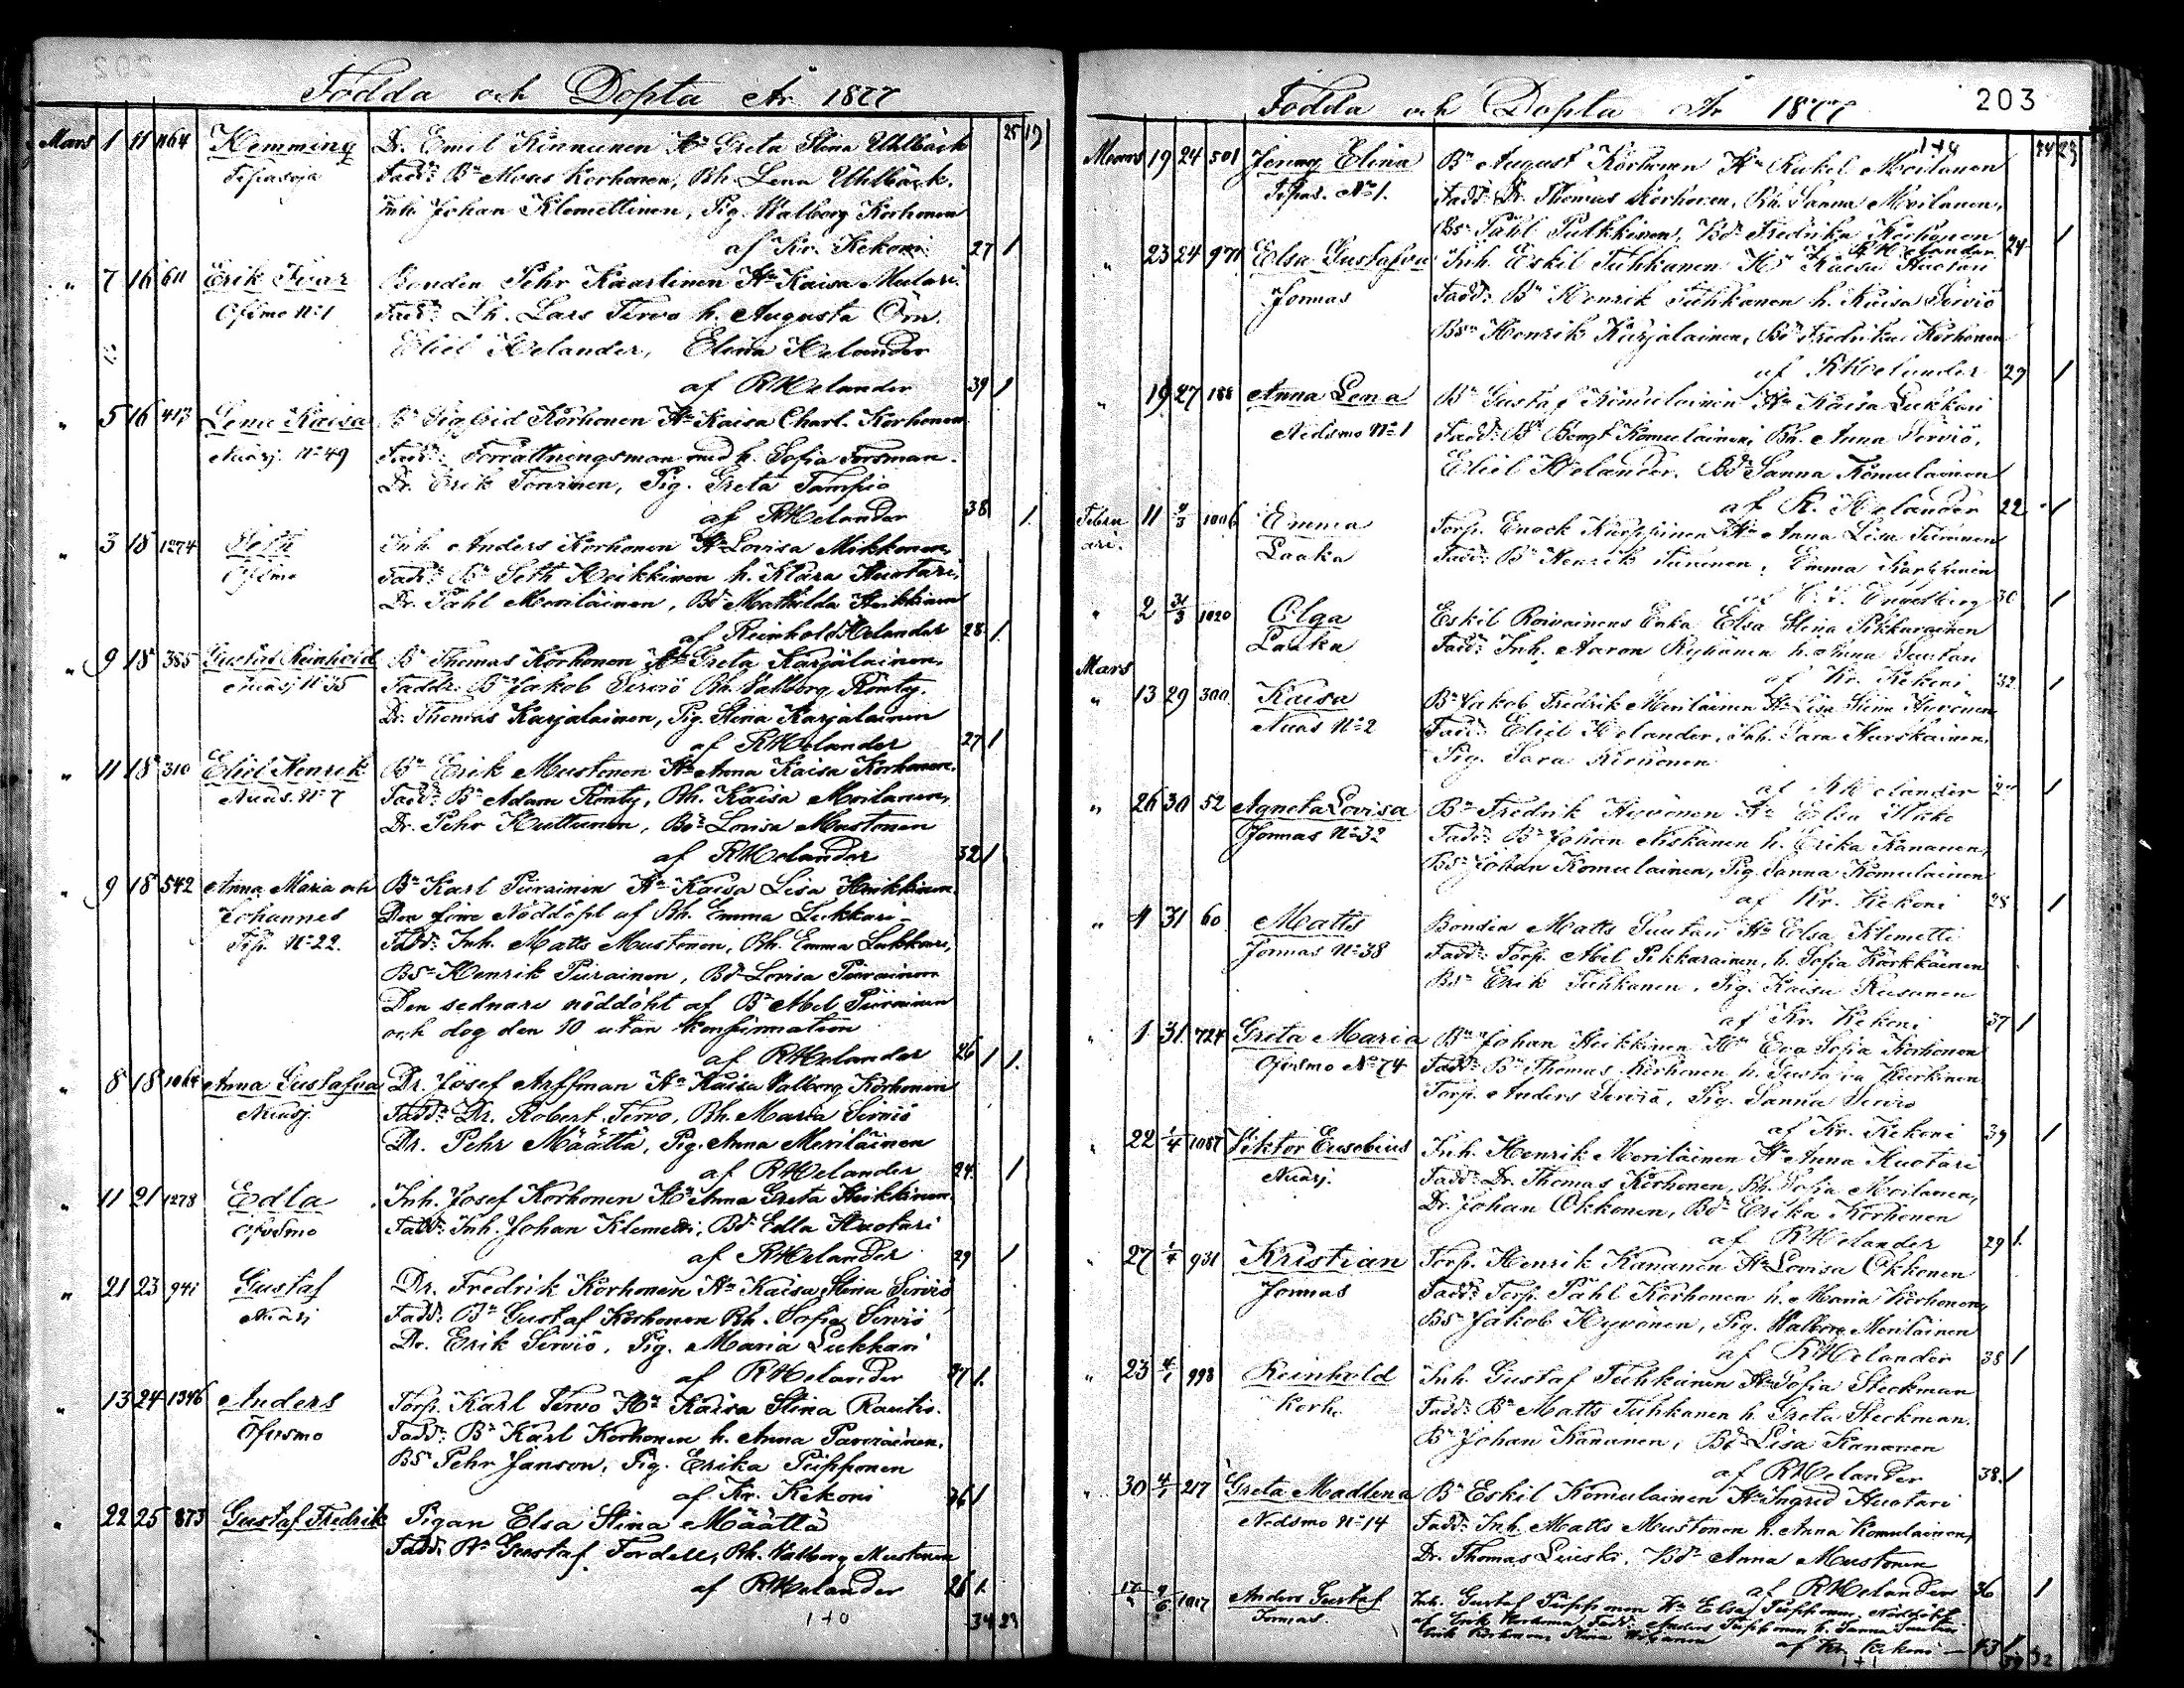 202
Födda och Döpta År 1877
25 19
Mars 1 11 1164 Hemming Dr. Emil Kinnunen Hu Greta Stina Uhlbäck
Tipasoja Fadd: Bn Moses Korhonen, Bh. Lena Uhlbäck.
Inh. Johan Klemettinen, Pig. Walborg Korhonen
af Kr. Kekoni 27 1
" 7 16 611 Erik Ivar Bonden Pehr Kaartinen Hu Kaisa Mulari.
Ofsmo No 1 Fadd: Lars Tervo h. Augusta Örn.
Eliel Helander, Elina Helander
af RHelander 39 1
" 5 16 413 Lena Kaisa Bn Sigfrid Korhonen Hu Kaisa Charl. Korhonen
Nuasj. No 49 Fadd: Förrättningsman med h. Sofia Forsman.
Dr. Erik Torvinen, Pig. Greta Tampio
af RHelander 38 1.
" 3 18 1274 Seth Inh. Anders Korhonen Hu Lovisa Mikkonen,
Ofsmo Fadd: Bn Seth Heikkinen h. Klara Huotari,
Dr. Påhl Meriläinen, Bd. Mathilda Heikkinen
af Reinhold Helander 28 1.
" 9 18 385 Gustaf Reinhold Bn Thomas Korhonen Hu Greta Karjalainen,
Nuasj No 35 Faddr: Bn Jakob Serviö Bh. Valborg Rönty.
Dr. Thomas Karjalainen, Pig. Stina Karjalainen
af RHelander 27 1
" 11 18 310 Eliel Henrik Bn Erik Mustonen Hu Anna Kaisa Korhonen.
Nuas. No 7 Fadd: Bn Adam Rönty, Bh. Kaisa Moilanen,
Dr. Pehr Huttunen, Bd. Lovisa Mustonen
af RHelander 32 1
" 9 18 542 Anna Maria och Bn Karl Piirainen Hu Kaisa Lisa Heikkinen.
Johannes Den förre Nöddöpt af Bh. Emma Lukkari
Tip. No 22. Fadd: Inh. Matts Mustonen, Bh. Emma Lukkari,
Bs. Henrik Piirainen, Bd. Lovisa Piirainen
Den sednare nöddöpt af Bn Abel Piirainen
och dog den 10 utan konfirmation
af RHelander 26 1 1.
" 8 18 1064 Anna Gustafva Dr. Josef Arffman Hu Kaisa Valborg Korhonen
Nuasj. Fadd: Dr. Robert Tervo, Bh. Maria Serviö
Dr. Pehr Määttä, Pig. Anna Meriläinen
af RHelander 24 1
" 11 21 1278 Edla Inh. Josef Korhonen Hu Anna Greta Heikkinen
Ofvsmo Fadd: Inh. Johan Klemetti, Bd. Edla Huotari
af RHelander 29 1
" 21 23 941 Gustaf Dr. Fredrik Korhonen Hu Kaisa Stina Serviö
Nuasj Fadd: Bn Gustaf Korhonen Bh. Sofia Serviö
Dr. Erik Serviö, Pig. Maria Lukkari
af RHelander 37 1.
" 13 24 1346 Anders Torp. Karl Tervo Hu Kaisa Stina Rautio.
Öfvsmo Fadd: Bn Karl Korhonen h. Anna Parviainen,
Bs Pehr Janson, Pig. Erika Piipponen
af Kr. Kekoni 36 1
" 22 25 873 Gustaf Fredrik Pigan Elsa Stina Määttä
Fadd: Bn Gustaf Fordell, Bh. Valborg Mustonen
af RHelander 26 1.
1+0 34 23
203
Födda och Döpta År 1877
1+4 34 23
Mars 19 24 501 Jenny Elina Bn August Korhonen Hu Rakel Moilanen
Tipas. No 1. Fadd: Dr. Thomas Korhonen, Bh. Sanna Moilanen,
Bs. Påhl Pulkkinen, Bd. Fredrika Korhonen
af RHelander 24 1
" 23 24 971 Elsa Gustafva Inh. Eskil Tuhkanen Hu Kaisa Huotari
Jormas Fadd: Bn Henrik Tuhkanen h. Kaisa Serviö
Bsn Henrik Karjalainen, Bd Fredrika Korhonen
af RHelander 29 1
" 19 27 188 Anna Lena Bn Gustaf Komulainen Hu Kaisa Lukkari
Nedsmo No 1 Fadd: Bn Bengt Komulainen, Bh. Anna Serviö,
Eliel Helander. Bd Sanna Komulainen
af R. Helander 22 1
Februari. 11 9/3 1006 Emma Torp. Enock Karppinen Hu Anna Lisa Tiironen
Laaka Fadd: Bn Henrik Tiironen, Emma Karppinen
af Engelberg 30 1
" 2 31/3 1020 Olga Eskil Roivainens Enka Elsa Stina Pikkarainen
Laaka Fadd: Inh. Aaron Kyllönen h. Anna Juntari
af Kr. Kekoni 32 1
Mars
" 13 29 300 Kaisa Bn Jakob Fredrik Meriläinen Hu Lisa Stina Hyvönen
Nuas No 2 Fadd: Eliel Helander, Inh. Sara Hurskainen,
Pig. Sara Kinnonen
af RHelander 1
" 26 30 52 Agneta Lovisa Bn Fredrik Hyvönen Hu Elsa
Jormas No 32 Fadd: Bn Johan Niskanen h. Erika Kananen,
Bs. Johan Komulainen, Pig. Sanna Komulainen
af Kr. Kekoni 28 1
" 4 31 60 Matts Bonden Matts Juntari Hu Elsa Klemetti
Jormas No 38 Fadd: Torp. Abel Pikkarainen, h. Sofia Kärkkäinen
Bs. Erik Tuhkanen, Pig. Kaisa Kusunen
af Kr. Kekoni 37 1
" 1 31 724 Greta Maria Bn Johan Heikkinen Hu Eva Sofia Korhonen
Ofvsmo No 74 Fadd: Bn Thomas Korhonen h. Gustafva Kurkinen
Torp. Anders Serviö, Pig. Sanna Serviö
af Kr. Kekoni 39 1
" 22 1/4 1087 Viktor Eusebius Inh. Henrik Meriläinen Hu Anna Huotari
Nuasj. Fadd: Dr. Thomas Korhonen, Bh. Sofia Moilanen,
Dr. Johan Okkonen, Bd. Erika Korhonen
af RHelander 29 1.
" 27 1/4 931 Kristian Torp. Henrik Kananen Hu Lovisa Okkonen
Jormas Fadd: Torp. Påhl Korhonen h. Maria Korhonen,
Bs Jakob Hyvönen, Pig. Walborg Meriläinen
af RHelander 38 1
" 23 4/4 998 Reinhold Inh. Gustaf Tuhkanen Hu Sofia Steckman
Korh. Fadd: Bn Matts Tuhkanen h. Greta Steckman.
Bn Johan Kananen, Bd Lisa Kananen
af RHelander 38. 1
" 30 4/4 217 Greta Madlena Bn Eskil Komulainen Hu Ingrid Huotari
Nedsmo No 14 Fadd: Inh. Matts Mustonen h. Anna Komulainen,
Dr. Thomas Leinski, Bd Anna Mustonen
af RHelander 36 1
1017 Anders Gustaf Inh. Gustaf Piipponen Hu Elsa Piipponen. Nöddöpt
Jormas. af Erik Korhonen, Fadd: Anders Piipponen h. Sanna
Erik Korhonen, Stina
af Kr. Kekoni — 43 1.
1+1 32